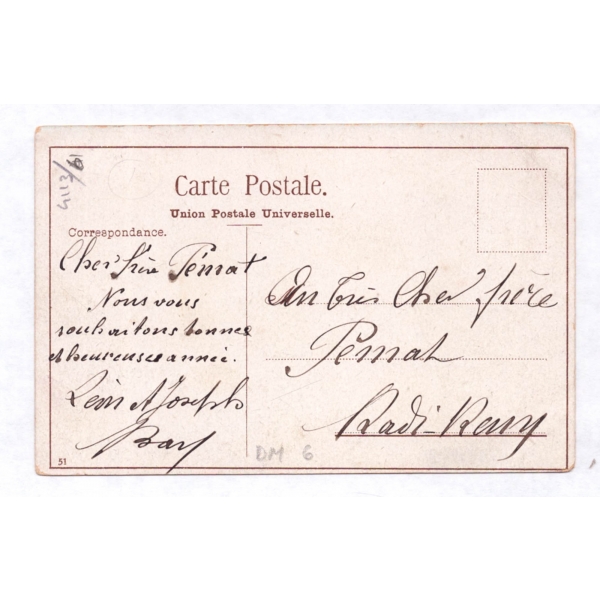 4113/61
Carte Postale.
Union Postale Universelle.
Correspondance.
Cher frère Pémat
Nous vous
souhaitons bonnee
et heureusee année.
Léon et Joseph
Au très Cher frère
Pémat
Kadi-Keuy
DM 6
51